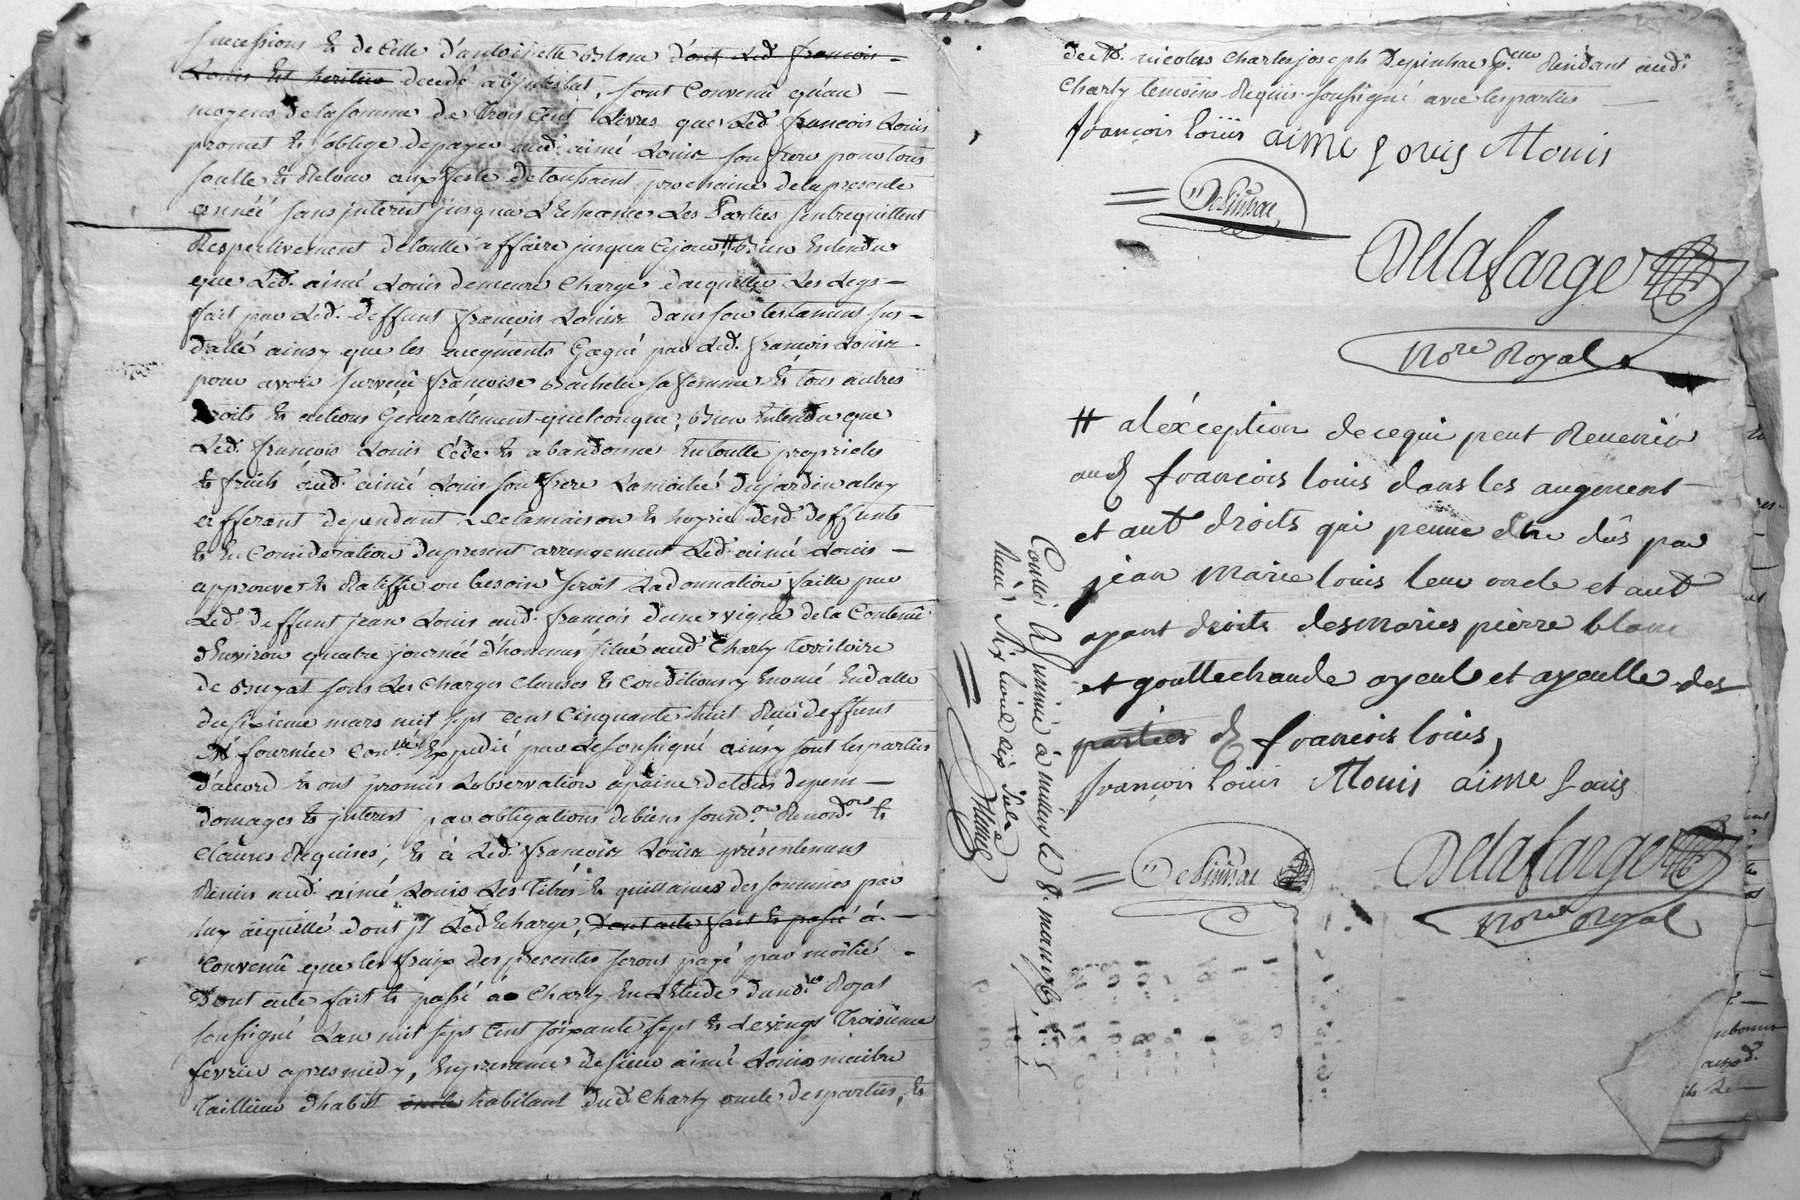 successions et de celle d'antoinette Blanc dont led. françois
Louis est heritier decedé abjntestat, sont convenû qu'au
moyens de la somme de trois cent Livres que Led. françois Louis
promet et s'oblige de payer aud. aimé Louis son frere pour tous
soulte et Retour aux feste de toussaint prochaine de la presente
année sans jnterest jusqua L'Echeance Les Parties s'entrequittent
Respectivement de toutte affaire jusqua Cejour # Bien Entendu
que Led. aimé Louis demeure Chargé dacquitter Les Legs
fait par Led. deffunt françois Louis dans son testament sus
datté ainsy que les augments Gagné par Led. françois Louis
pour avoir survecû françoise Bachelu sa femme et tous autres
Droits et actions Généralement quelconque; Bien Entendu que
Led. françois Louis Cede et abandonne En toutte proprietés
et fruits aud. aimé Louis son frere La moitié du jardin a luy
efferant dependant de la maison et hoyrie desd. deffunts
et En Consideration du present arrengement Led. aimé Louis
approuve et Ratiffie ou besoin seroit La donnation faitte par
Led. deffunt jean Louis aud. françois d'une vigne de la Contenüe
d'Environ quatre journée d'hommes situé aud. Charly territoire
de Buyat sous Les Charges Clauses et Conditions y Enoncé En datte
du sixieme mars mil sept Cens Cinquante huit Reçû deffunt
Me fournier Con.lé Expedié par Le soussigné ainsy sont les parties
d'accord et ont promis L'observation a peine de tous depens
domages et jnterest par obligations de biens soum.ons Renon.ons et
Clauses Requises; et à Led. françois Louis présentement
Remis aud. aimé Louis Les titres et quittances des sommes par
luy acquitté dont jl Led. Echarge, Dont acte fait et passé à
Convenû que les fraix des presentes serons payé par moitié
Dont acte fait et passé a Charly En L'Etude du no.re Royal
soussigné L'an mil sept Cent soixante sept et le vingt troisieme
fevrier apres midy, En presence de sieur aimé Louis maitre
tailleur d'habit oncle habitant dud. Charly oncle des parties, et
de Sr. nicolas Charles joseph Depinhac p.cien Residant aud.
Charly temoins Requis soussigné avec les parties
françois loüis aime Louis Alouis
Depinhac
Delafarge
No.re Royal
# a léxception de ce qui peut Revenir
aud françois louis dans les augment
et autt droits qui peuve être dûs par
jean marie louis leur oncle et autt
ayant droits des mariés pierre blanc
et gouttechaude ayeul et ayeulle des
parties d. françois louis,
françois loüis Alouis aime Louis
Depinhac
Delafarge
No.re Royal
Conllé & Insinué à millery le 8. mars 1767,
Recû six livre dix sols